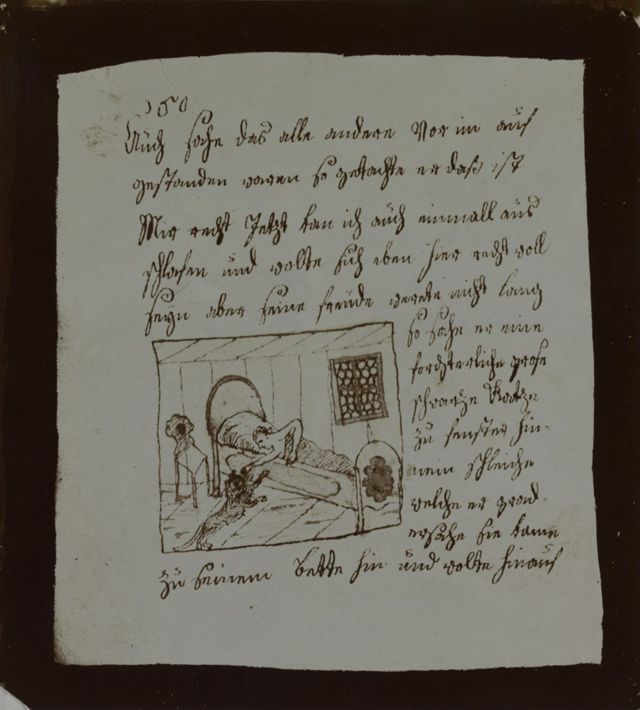 150
Auch sahe das alle andere Vor im auf
gestanden waren so gedachte er daß ist
Mir recht Jetzt kan ich auch einmall aus
schlafen und wolte sich eben hier recht voll
seyn aber seine freüde werete nicht lang
so sahe er eine
förchterliche grose
schwarze Katze
zu fenster hin-
nein schleiche
welche er grad-
ersahe sie kame
zu seinem Bette hin und wolte hinauf